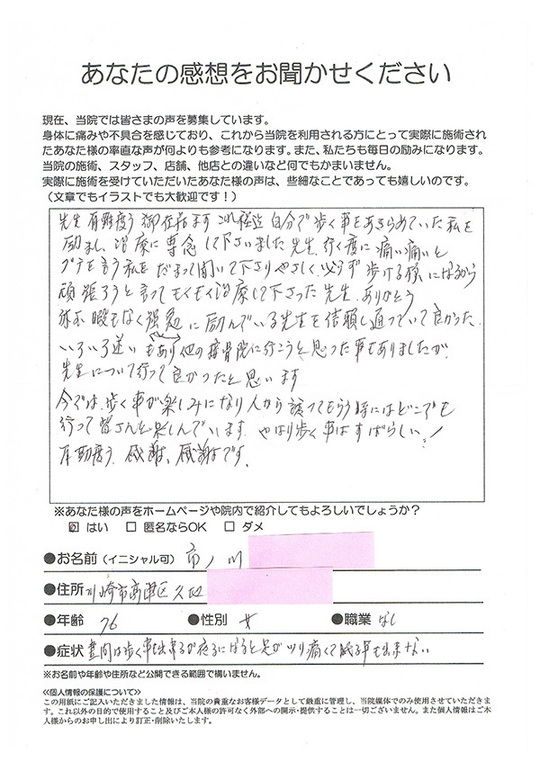 あなたの感想をお聞かせください
現在、当院では皆さまの声を募集しています。
身体に痛みや不具合を感じており、これから当院を利用される方にとって実際に施術され
たあなた様の率直な声が何よりも参考になります。また、私たちも毎日の励みになります。
当院の施術、スタッフ、店舗、他店との違いなど何でもかまいません。
実際に施術を受けていただいたあなた様の声は、些細なことであっても嬉しいのです。
（文章でもイラストでも大歓迎です！）
先生 有難度う御在居ます これ程迄 自分で歩く事をあきらめていた私を
励まし、治療に専念して下さいました先生、行く度に痛い痛いと
グチを言う私をだまって聞いて下さりやさしく必らず歩ける様になるから
頑張ろうと言ってもくもく治療して下さった先生、ありがとう
暇もなく に励んでいる先生を信頼し通っていて良かった、
いろいろ迷いもあり他の接骨院に行こうと思った事もありましたが
先生について行って良かったと思います
今では、歩く事が楽しみになり人から誘ってもらう時にはどこでも
行って皆さんと楽しんでいます、やはり歩く事はすばらしい！
有難度う、感謝、感謝です。
※あなた様の声をホームページや院内で紹介してもよろしいでしょうか？
☑ はい □ 匿名ならOK □ ダメ
●お名前（イニシャル可） 市ノ川
●住所 川崎市高津区久地
●年齢 76 ●性別 女 ●職業 なし
●症状 昼間は歩く事も出来るが夜になると足がツリ痛くて眠る事も出来ない
※お名前や年齢や住所など公開できる範囲で構いません。
≪個人情報の保護について≫
この用紙にご記入いただきました情報は、当院の貴重なお客様データとして厳重に管理し、当院媒体でのみ使用させていただきま
す。これ以外の目的で使用すること及びご本人様の許可なく外部への開示・提供することは一切ございません。また個人情報はご本
人様からのお申し出により訂正・削除いたします。